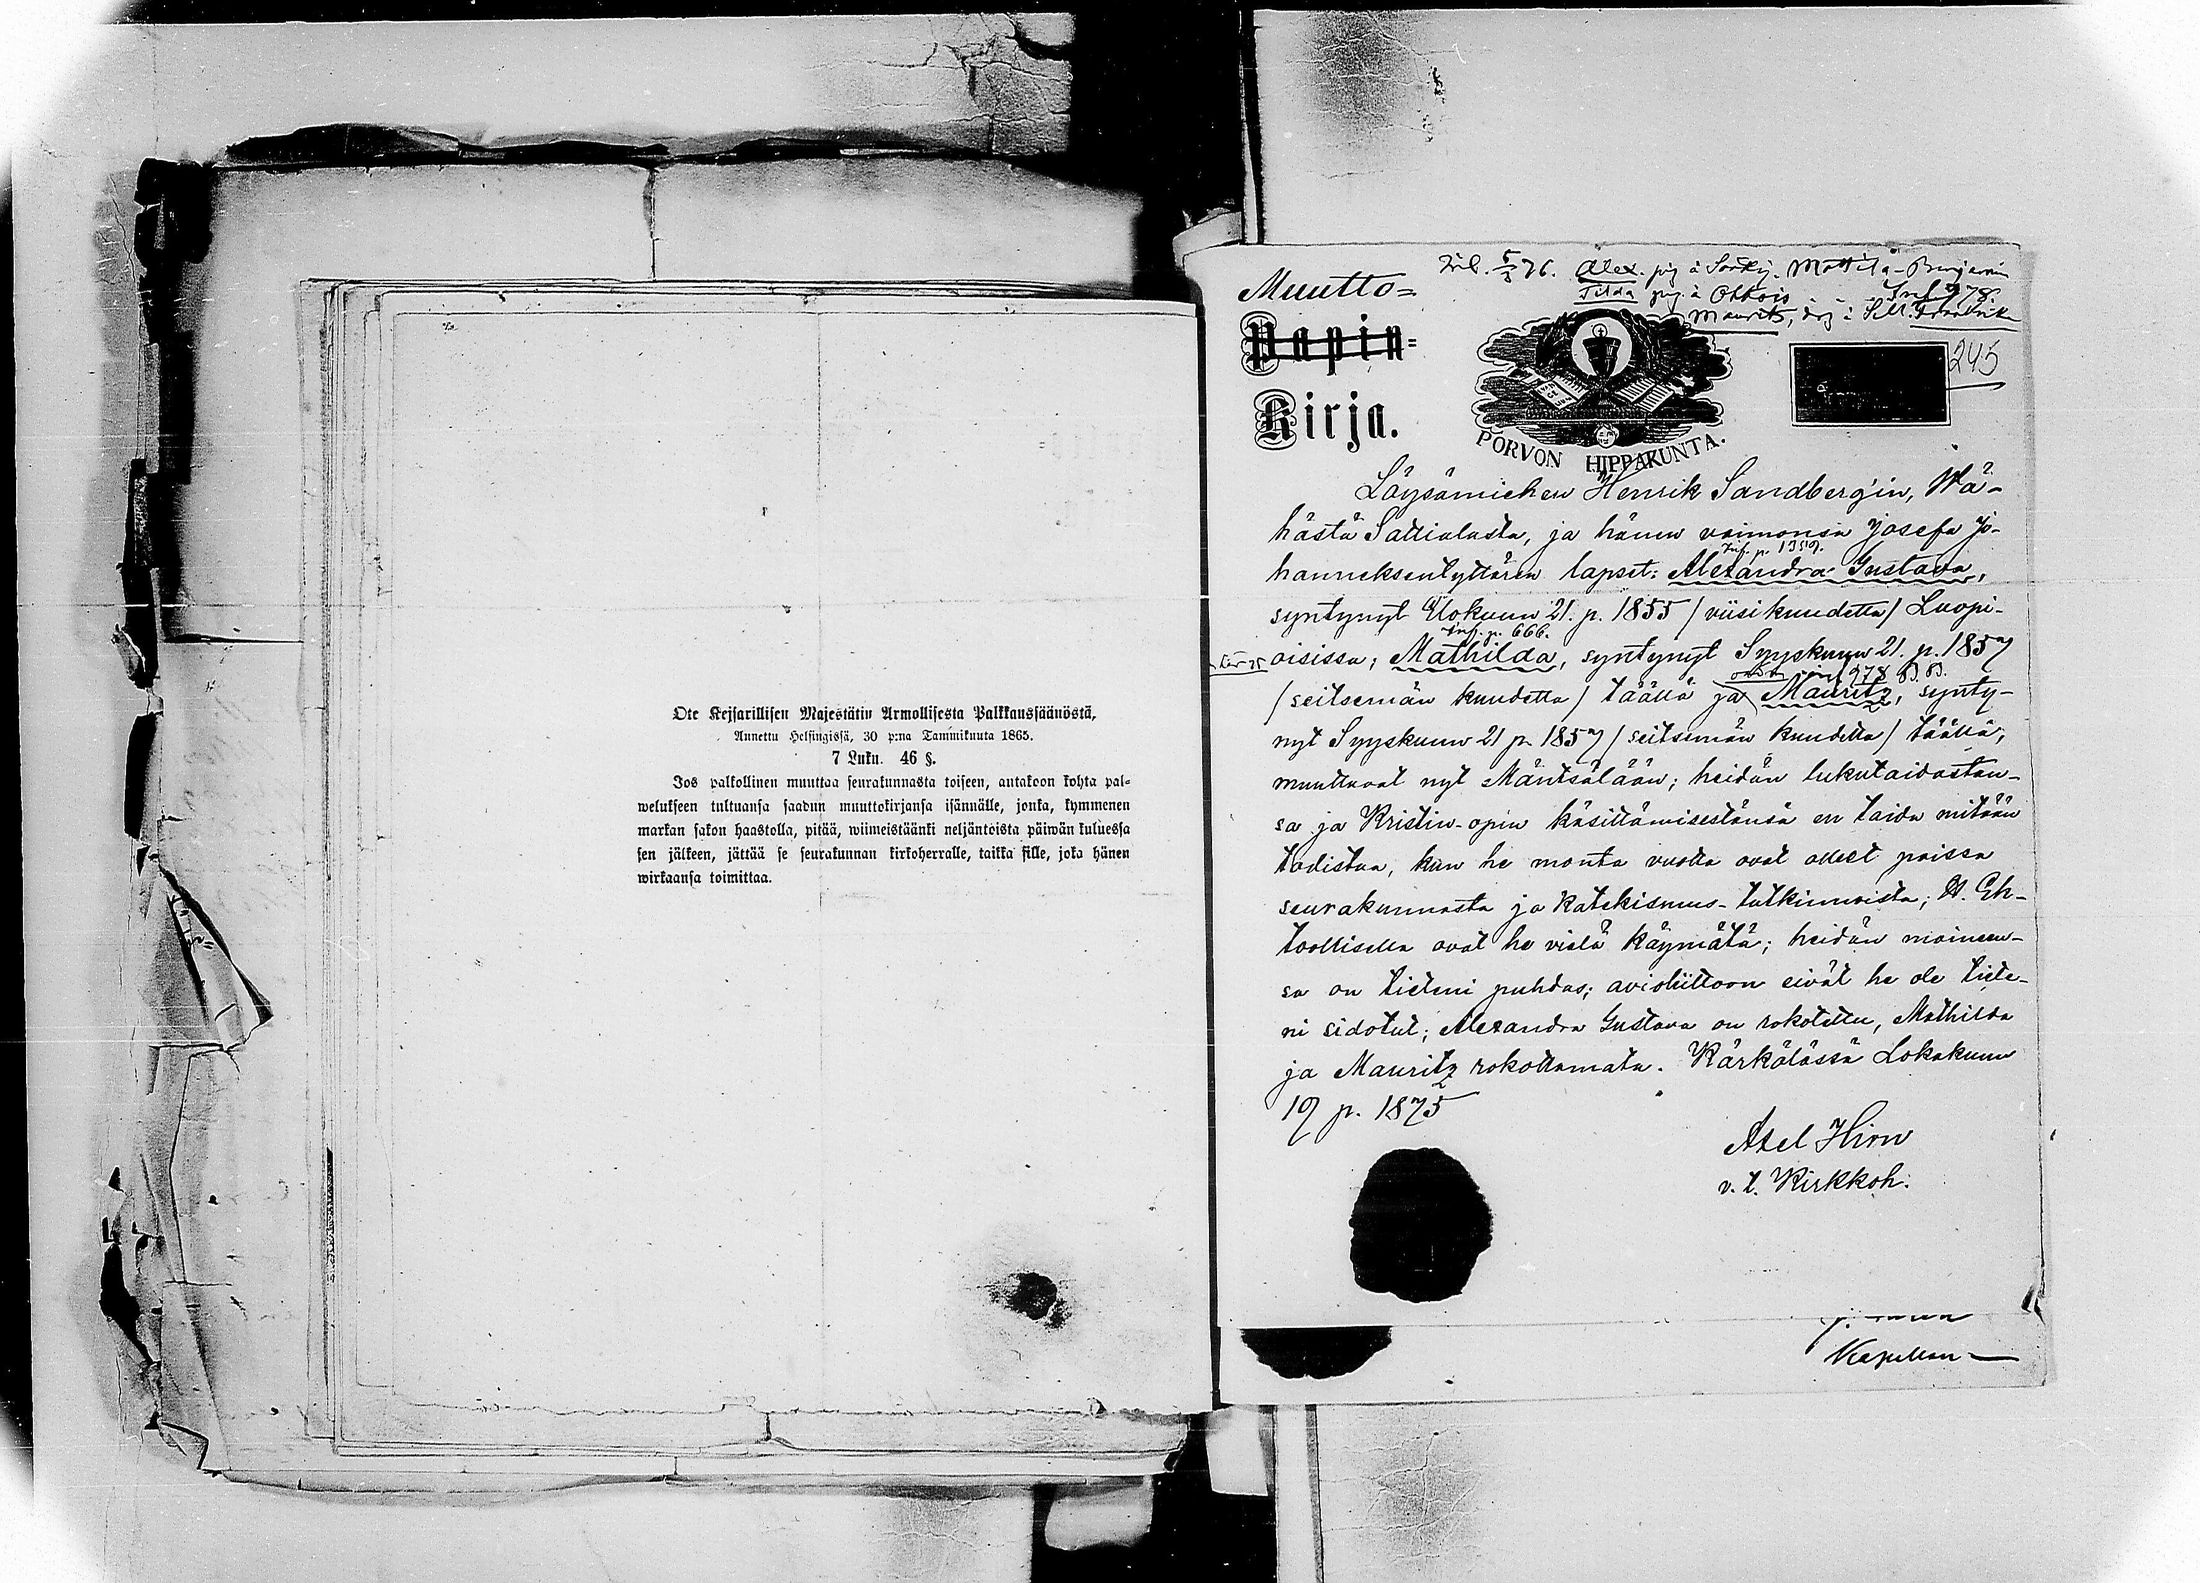 Ote Kejsarillisen Majestätin Armollisesta Palkkaussäänöstä,
Annettu Helsingissä, 30 p:na Tammikuuta 1865.
7 Luku. 46 §.
Jos palkollinen muuttaa seurakunnasta toiseen, antakoon kohta pal-
welukseen tultuansa saadun muuttokirjansa isännälle, jonka, kymmenen
markan sakon haastolla, pitää, wiimeistäänki neljäntoista päiwän kuluessa
sen jälkeen, jättää se seurakunnan kirkoherralle, taikka sille, joka hänen
wirkaansa toimittaa.
5/3 76. Alex. pig à Mattila-Benjamin
Tilda pig. à Ottois Inf 978
Mauritz, drg à Fredrik
Muutto=
Papin=
Kirja.
PORVON HIPPAKUNTA.
245
Löysämiehen Henrik Sandberg'in, Wä-
hästä Sattialasta, ja hänen vaimonsa Josefa Jo-
Inf. p. 1359.
hanneksentyttären lapset: Alexandra Gustava,
syntynyt Elokuun 21. p. 1855 /viisikuudetta/ Luopi-
Inf. p. 666.
oisissa; Mathilda, syntynyt Syyskuun 21. p. 1857
978
/seitsemän kuudetta/ täällä ja Mauritz, synty-
nyt Syyskuun 21 p. 1857 /seitsemän kuudetta/ täällä,
muuttavat nyt Mäntsälään; heidän lukutaidostan-
sa ja Kristin-opin käsittämisestänsä en taida mitään
todistaa, kun he monta vuotta ovat olleet poissa
seurakunnasta ja Katekismus-tutkinnoista; H. Eh-
toollisella ovat he vielä käymätä; heidän maineen-
sa on tieteni puhdas; avioliittoon eivät he ole tiete-
ni sidotut; Alexandra Gustava on rokotettu, Mathilda
ja Mauritz rokottamata. Kärkölässä Lokakuun
19 p. 1875
Axel Hirn
v. t. Kirkkoh.
Kapellan